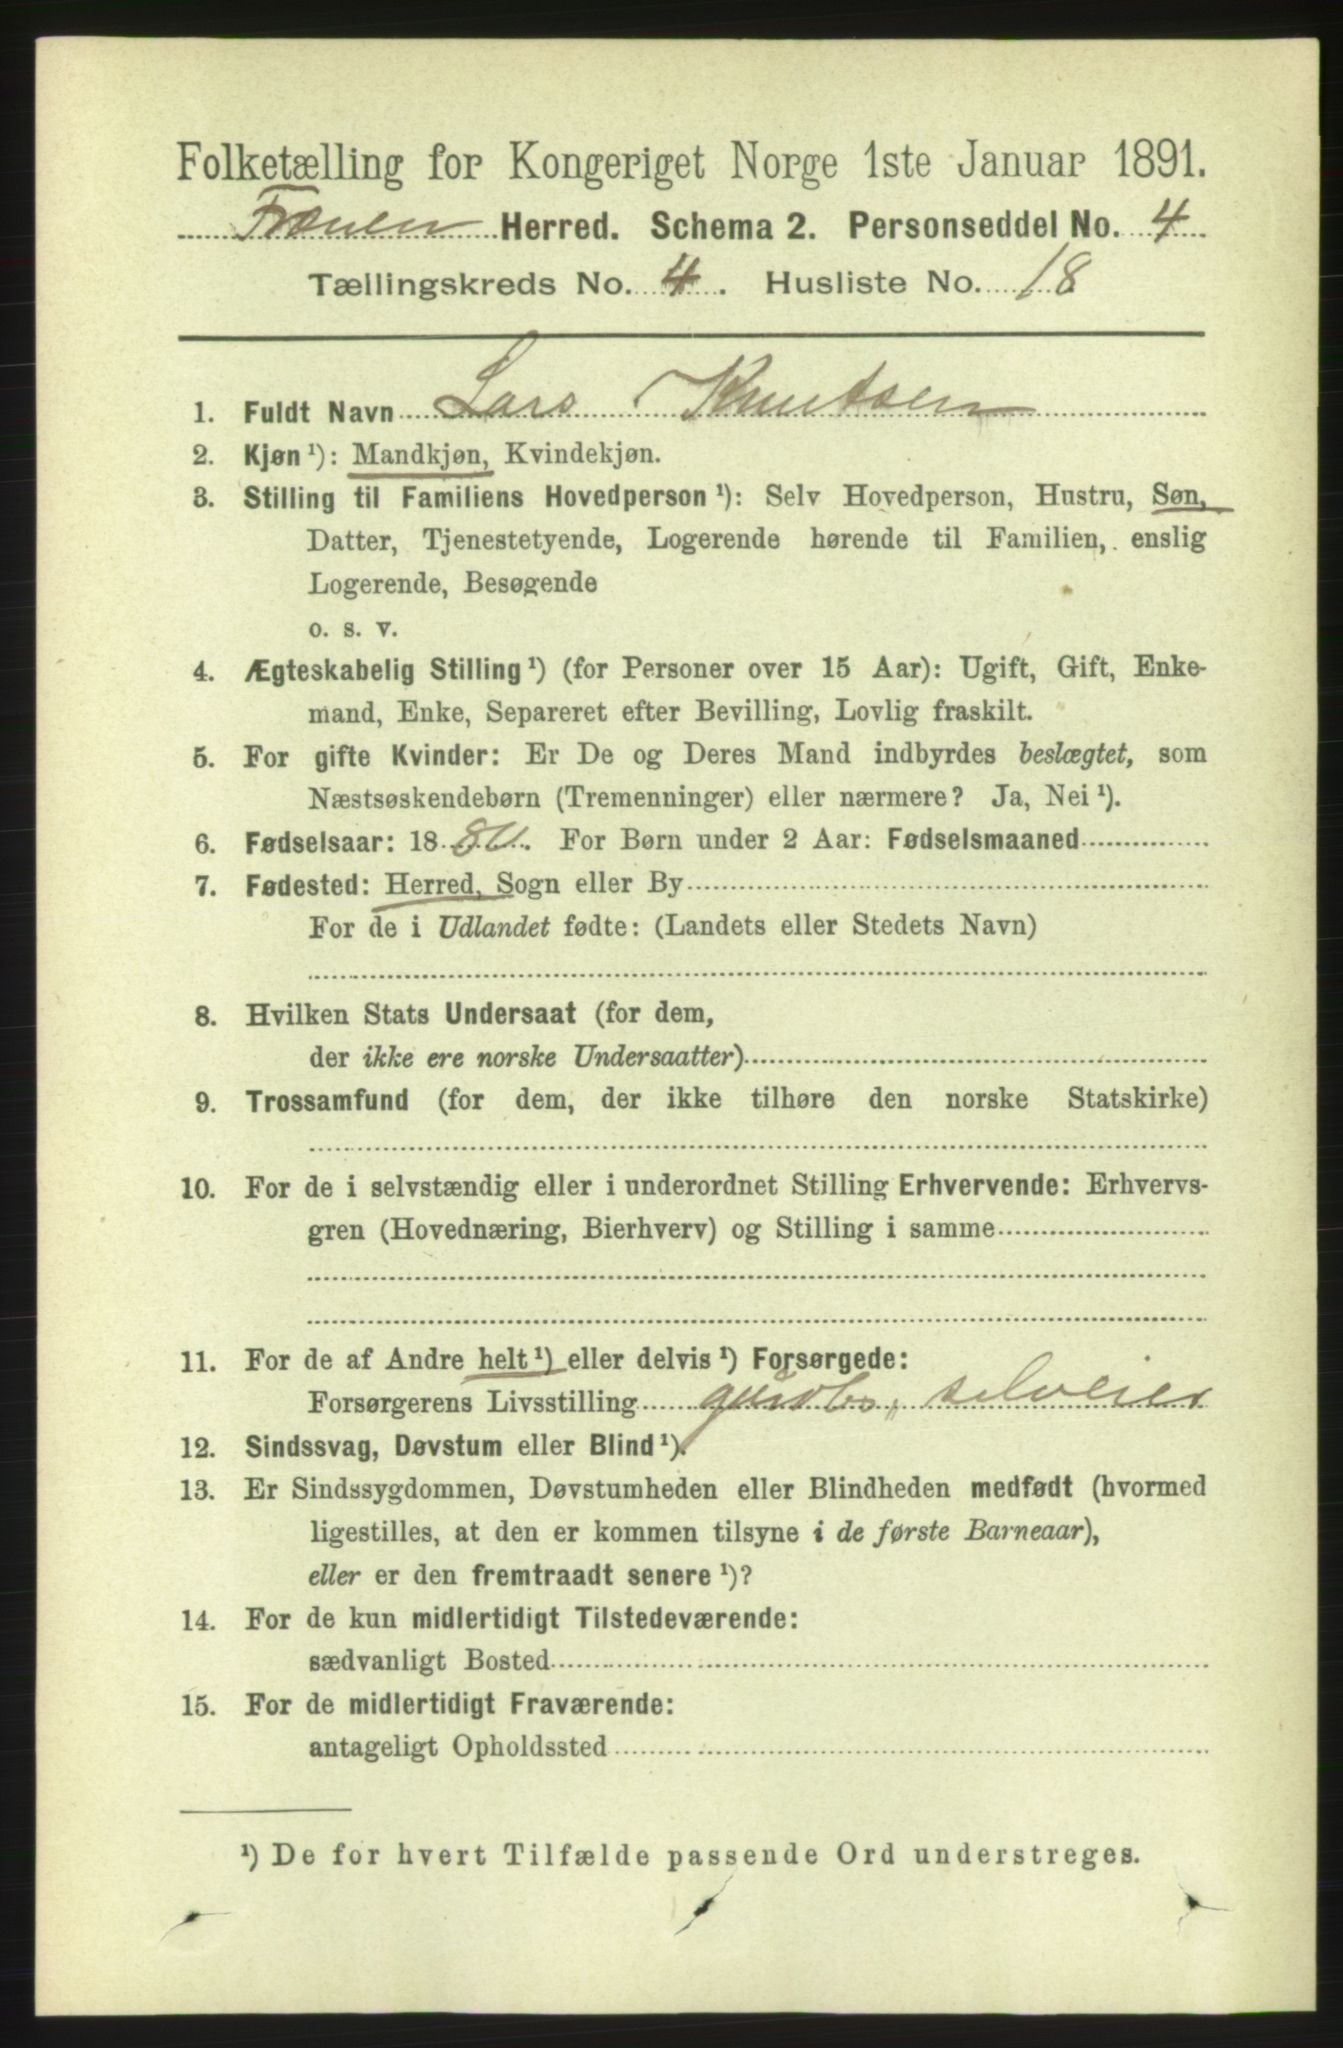 Folketælling for Kongeriget Norge 1ste Januar 1891.
Frænen Herred. Schema 2. Personseddel No. 4
Tællingskreds No. 4. Husliste No. 18
1. Fuldt Navn Lars Knutsen
2. Kjøn ¹): Mandkjøn, Kvindekjøn.
3. Stilling til Familiens Hovedperson ¹): Selv Hovedperson, Hustru, Søn,
Datter, Tjenestetyende, Logerende hørende til Familien, enslig
Logerende, Besøgende
o. s. v.
4. Ægteskabelig Stilling ¹) (for Personer over 15 Aar): Ugift, Gift, Enke-
mand, Enke, Separeret efter Bevilling, Lovlig fraskilt.
5. For gifte Kvinder: Er De og Deres Mand indbyrdes beslægtet, som
Næstsøskendebørn (Tremenninger) eller nærmere? Ja, Nei ¹).
6. Fødselsaar: 1880. For Børn under 2 Aar: Fødselsmaaned
7. Fødested: Herred, Sogn eller By
For de i Udlandet fødte: (Landets eller Stedets Navn)
8. Hvilken Stats Undersaat (for dem,
der ikke ere norske Undersaatter)
9. Trossamfund (for dem, der ikke tilhøre den norske Statskirke)
10. For de i selvstændig eller i underordnet Stilling Erhvervende: Erhvervs-
gren (Hovednæring, Bierhverv) og Stilling i samme
11. For de af Andre helt ¹) eller delvis ¹) Forsørgede:
Forsørgerens Livsstilling gaardb, selveier
12. Sindssvag, Døvstum eller Blind ¹).
13. Er Sindssygdommen, Døvstumheden eller Blindheden medfødt (hvormed
ligestilles, at den er kommen tilsyne i de første Barneaar),
eller er den fremtraadt senere ¹)?
14. For de kun midlertidigt Tilstedeværende:
sædvanligt Bosted
15. For de midlertidigt Fraværende:
antageligt Opholdssted
¹) De for hvert Tilfælde passende Ord understreges.